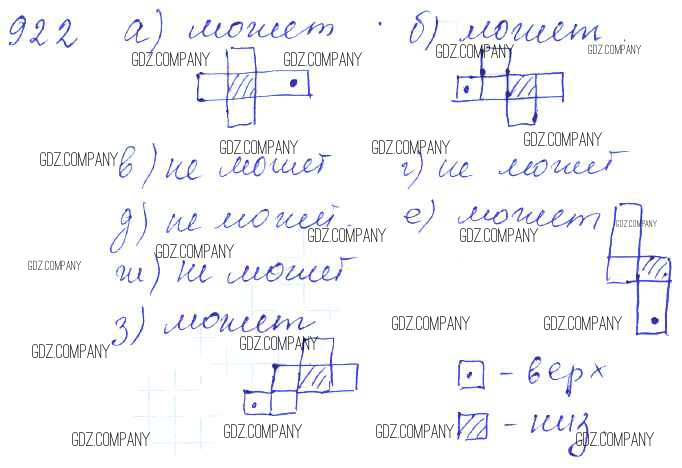 922 а) может б) может
GDZ.COMPANY GDZ.COMPANY GDZ.COMPANY GDZ.COMPANY
GDZ.COMPANY GDZ.COMPANY GDZ.COMPANY GDZ.COMPANY
в) не может г) не может
д) не может е) может
GDZ.COMPANY GDZ.COMPANY GDZ.COMPANY
GDZ.COMPANY GDZ.COMPANY
ж) не может
з) может
GDZ.COMPANY GDZ.COMPANY
GDZ.COMPANY GDZ.COMPANY
- верх
- низ
GDZ.COMPANY GDZ.COMPANY GDZ.COMPANY GDZ.COMPANY